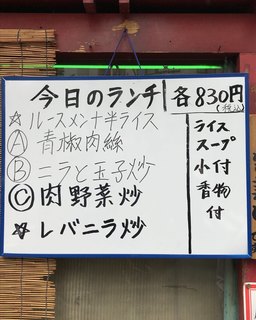 今日のランチ 各830円
(税込)
☆ルースメンナ半ライス
Ⓐ青椒肉絲
Ⓑニラと玉子炒
Ⓒ肉野菜炒
★レバニラ炒
ライス
スープ
小付
香物
付